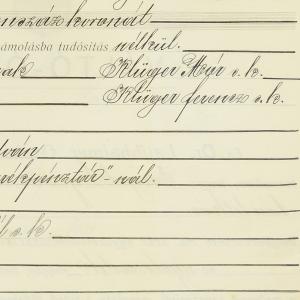 enszáz koronát
zámolásba tudósítás nélkül.
ak Klüger Mór s.k.
Klüger ferencz s.k.
tván
ékpénztár"-nál.
s.k.